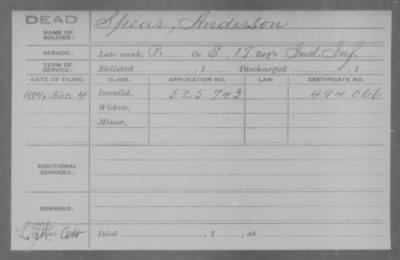 DEAD
NAME OF SOLDIER: Spear, Anderson
SERVICE: Late rank, P. Co. E, 17 Reg't Ind. Inf.
TERM OF SERVICE: Enlisted , 1 Discharged , 1
DATE OF FILING. CLASS. APPLICATION NO. LAW. CERTIFICATE NO.
1884, Nov. 4 Invalid, 525 743 494 066
Widow,
Minor,
ADDITIONAL SERVICES:
REMARKS:
Died , 1 , at